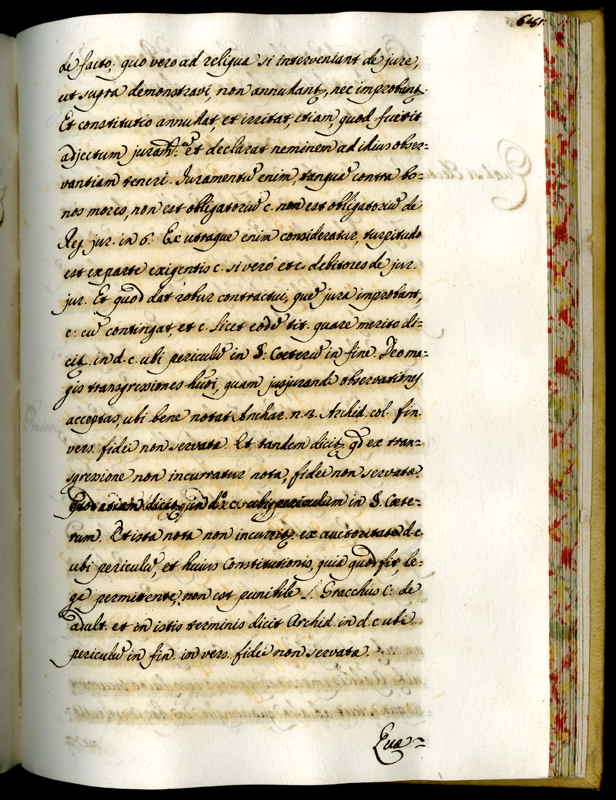 de facto, quo vero ad reliqua si interveniant de jure,
ut supra demonstravi, non annullant, nec improbant.
Et constitutio annullat, et irritat, etiam, quod fuerit
adjectum juram.tu et declarat neminem ad idius obser=
vantiam teneri. Juramentū enim, tanquā contra bo=
nos mores, non est obligatoriū c. non est obligatoriū de
Reg. jur. in 6. Ex utraque enim consideratur, turpitudo
est ex parte exigentis c. si veró et c. debitores de jur.
jur. Et quod dat robur contractui, quē jura improbant,
c. cū contingat, et c. licet eodē tit. quare merito di=
cit in d. c. ubi periculū in §. Coeterū in fine. Deo ma=
gis transgresiones hūi, quam jurjurandi observationes
acceptas, ubi bene notat Anchar. n. 2. Archid. col. fin
vers. fidei non servata. Et tandem dicit, qd ex tran=
sgresione non incurratur nota, fidei non servata.
quod etiam dicit in d.o c. ubi periculum in §. Coete=
rum. Et ista nota non incurrit, ex auctoritate d. c.
ubi periculū, et huius Constitutionis, quia quod fit, le=
ge permittente, non est punibile l. Gracchus C. de
adult. et in istis terminis dicit Archid. in d. c. ubi
periculū in fin. in vers. fidei non servata.